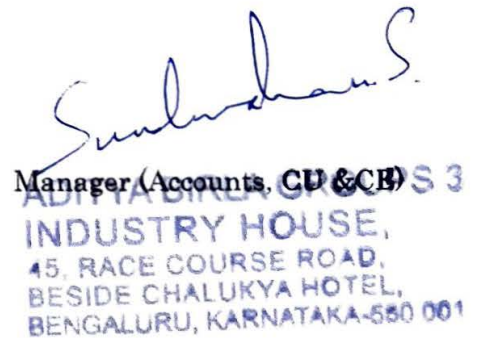 S.
Manager (Accounts, CU &CB)
ADITYA BIRLA GROUPS 3
INDUSTRY HOUSE,
45, RACE COURSE ROAD,
BESIDE CHALUKYA HOTEL,
BENGALURU, KARNATAKA-560 001